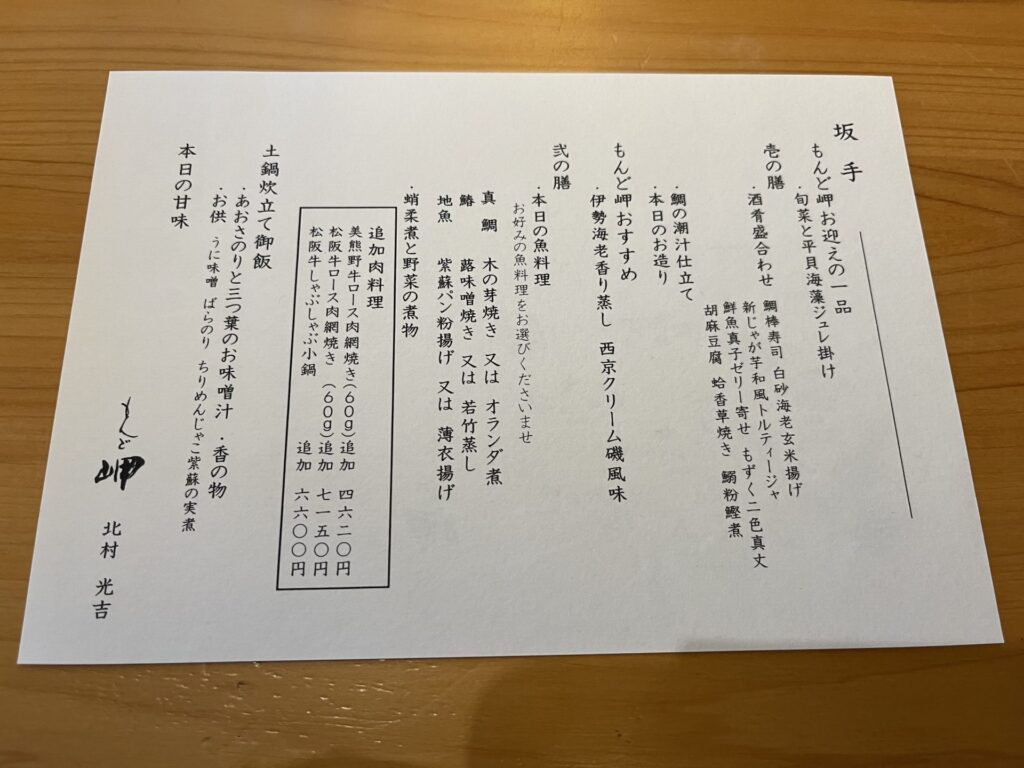 坂手
もんど岬お迎えの一品
・旬菜と平貝海藻ジュレ掛け
壱の膳
・酒肴盛合わせ 鯛棒寿司 白砂海老玄米揚げ
新じゃが芋和風トルティージャ
鮮魚真子ゼリー寄せ もずく二色真丈
胡麻豆腐 蛤香草焼き 鰯粉鰹煮
・鯛の潮汁仕立て
・本日のお造り
もんど岬おすすめ
・伊勢海老香り蒸し 西京クリーム磯風味
弐の膳
・本日の魚料理
お好みの魚料理をお選びくださいませ
真鯛 木の芽焼き 又は オランダ煮
鰆 蕗味噌焼き 又は 若竹蒸し
地魚 紫蘇パン粉揚げ 又は 薄衣揚げ
・蛸柔煮と野菜の煮物
追加肉料理
美熊野牛ロース肉網焼き(60g)追加 四六二〇円
松阪牛ロース肉網焼き(60g)追加 七一五〇円
松阪牛しゃぶしゃぶ小鍋 追加 六六〇〇円
土鍋炊立て御飯
・あおさのりと三つ葉のお味噌汁 ・香の物
・お供 うに味噌 ばらのり ちりめんじゃこ紫蘇の実煮
本日の甘味
もんど岬 北村 光吉